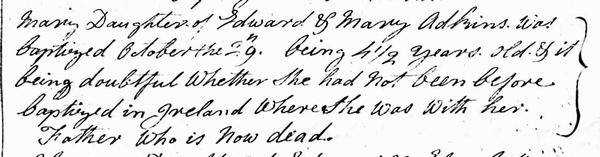 Mary Daughter of Edward & Mary Adkins. was
baptized October the 29. being 4 1/2 years. old. & it
being doubtful whether she had not been before
baptized in Ireland where she was with her.
Father who is now dead.